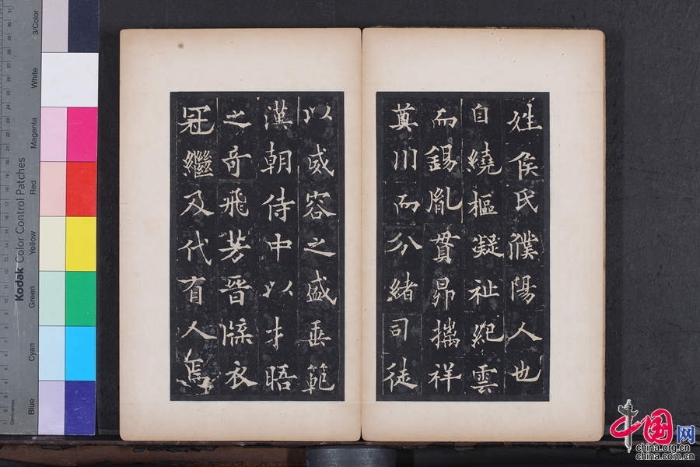 姓侯氏濮陽人也
自繞樞凝祉紀雲
而錫胤貫昴攜祥
奠川而分緒司徒
以威容之盛垂範
漢朝侍中以才晤
之奇飛芳晉牒衣
冠繼及代有人焉
Kodak Color Control Patches
Blue
Cyan
Green
Yellow
Red
Magenta
White
3/Color
中国网
china.org.cn
china.com.cn